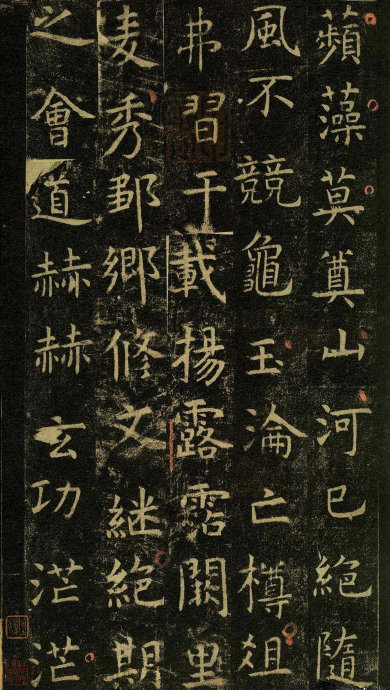 蘋藻莫奠山河已絶隨
風不競龜玉淪亡樽俎
弗習干載揚露霑闕里
麦秀鄒鄉修文継絶期
之會道赫赫玄功茫茫